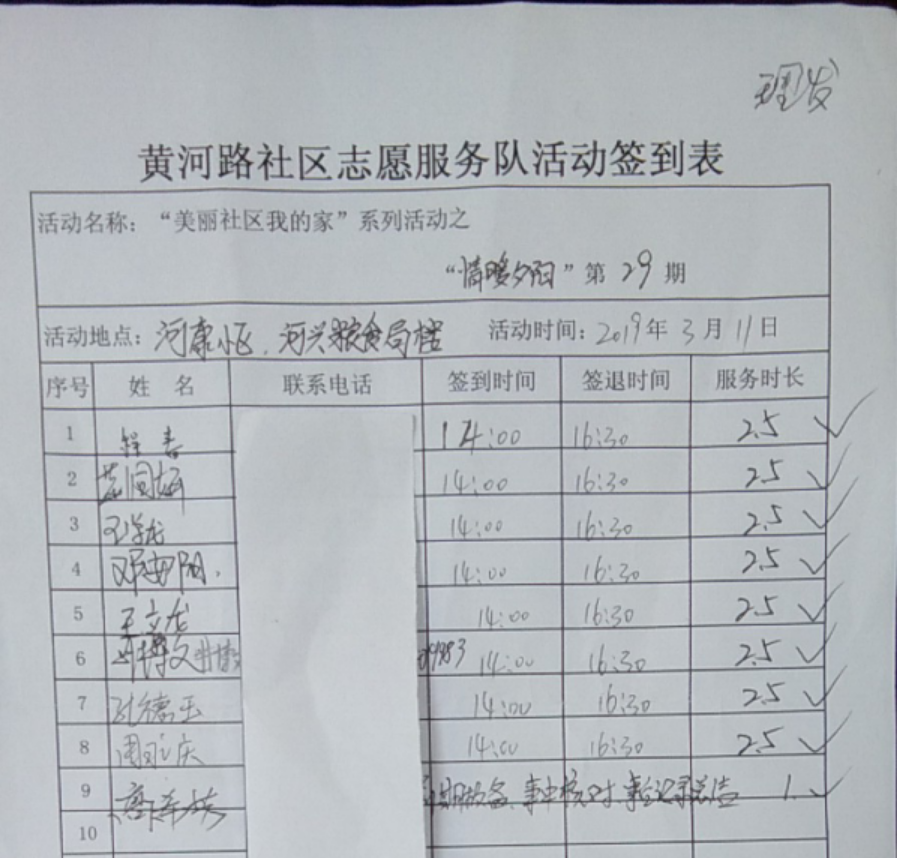 理发
黄河路社区志愿服务队活动签到表
活动名称：“美丽社区我的家”系列活动之
“情暖夕阳”第29期
活动地点：河康小区、河兴粮食局楼 活动时间：2019年3月11日
序号 姓名 联系电话 签到时间 签退时间 服务时长
1 14:00 16:30 2.5 ✓
2 14:00 16:30 2.5 ✓
3 14:00 16:30 2.5 ✓
4 邓安阳. 14:00 16:30 2.5 ✓
5 王文龙 14:00 16:30 2.5 ✓
6 博文 14:00 16:30 2.5 ✓
7 孙德玉 14:00 16:30 2.5 ✓
8 14:00 16:30 2.5 ✓
9 准备、事中核对、事后记录总结 1. ✓
10